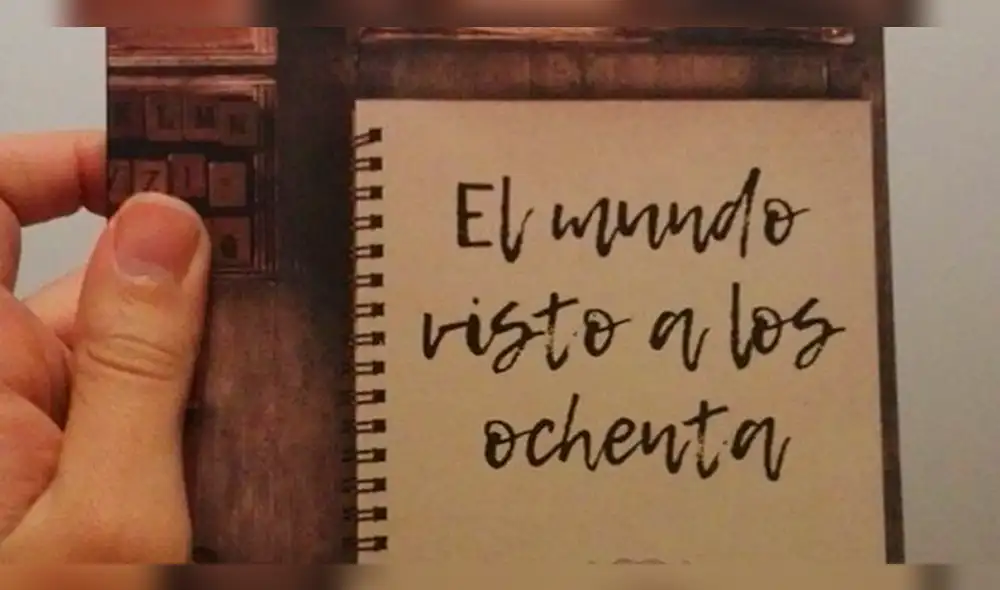 K L M N
Y Z ! 
El mundo
visto a los
ochenta